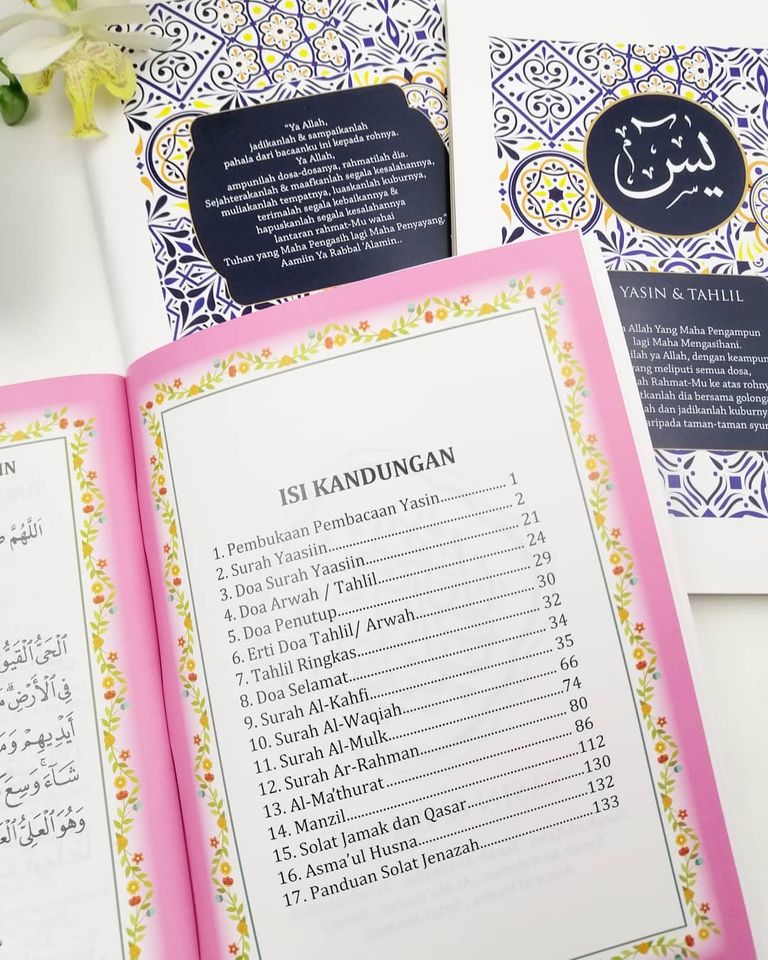 "Ya Allah,
jadikanlah & sampaikanlah
pahala dari bacaanku ini kepada rohnya.
Ya Allah,
ampunilah dosa-dosanya, rahmatilah dia.
Sejahterakanlah & maafkanlah segala kesalahannya,
muliakanlah tempatnya, luaskanlah kuburnya,
terimalah segala kebaikannya &
hapuskanlah segala kesalahannya
lantaran rahmat-Mu wahai
Tuhan yang Maha Pengasih lagi Maha Penyayang."
Aamiin Ya Rabbal 'Alamin..
يس
YASIN & TAHLIL
Allah Yang Maha Pengampun
lagi Maha Mengasihani.
ya Allah, dengan
yang meliputi semua dosa,
Rahmat-Mu ke atas
dia bersama
dan jadikanlah
taman-taman
ISI KANDUNGAN
1. Pembukaan Pembacaan Yasin................ 1
2. Surah Yaasiin................ 2
3. Doa Surah Yaasiin................ 21
4. Doa Arwah / Tahlil................ 24
5. Doa Penutup................ 29
6. Erti Doa Tahlil/ Arwah................ 30
7. Tahlil Ringkas................ 32
8. Doa Selamat................ 34
9. Surah Al-Kahfi................ 35
10. Surah Al-Waqiah................ 66
11. Surah Al-Mulk................74
12. Surah Ar-Rahman................ 80
13. Al-Ma'thurat................ 86
14. Manzil................112
15. Solat Jamak dan Qasar................130
16. Asma'ul Husna................132
17. Panduan Solat Jenazah................133
اَللّٰهُمَّ
ٱلْحَىُّ
فِى ٱلْأَرْضِ
أَيْدِيهِمْ
شَآءَ وَسِعَ
وَهُوَ ٱلْعَلِىُّ